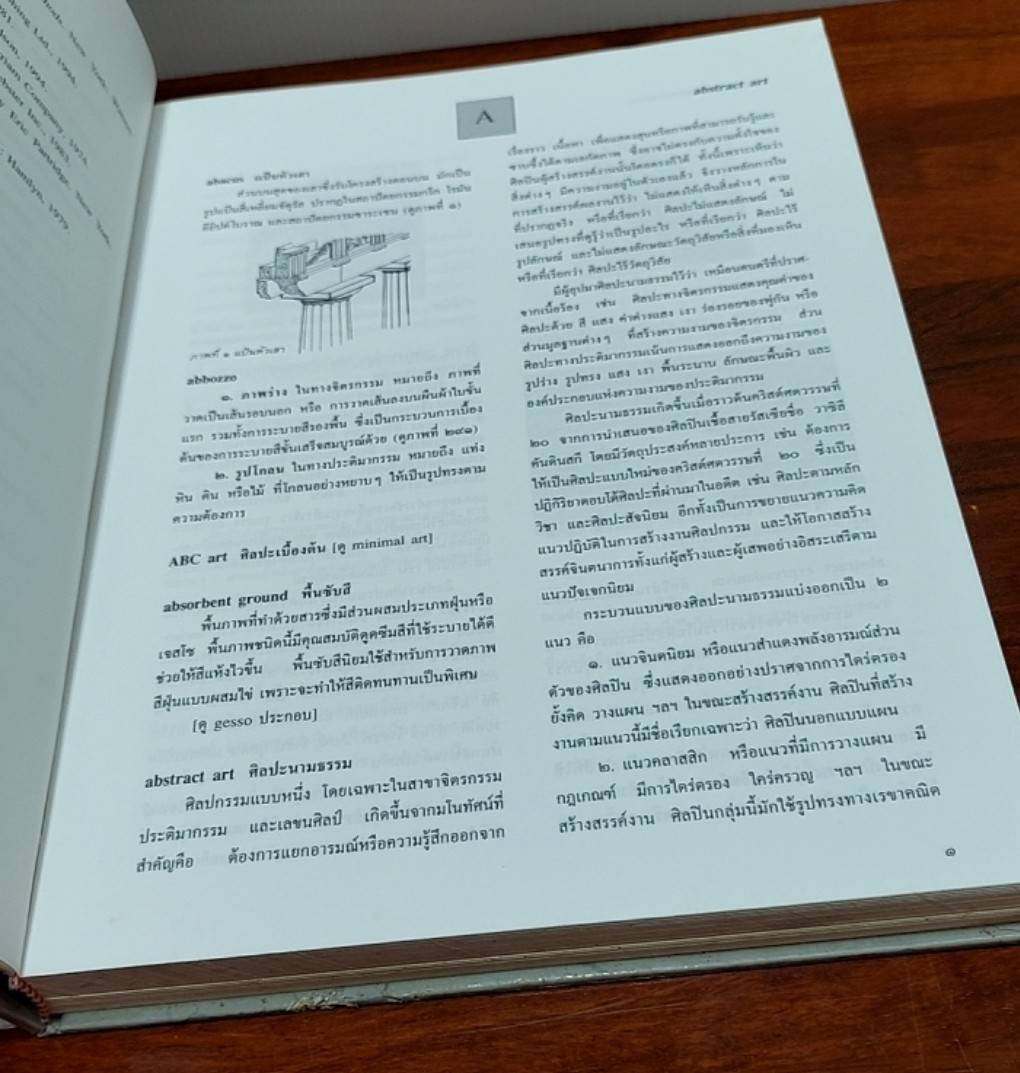 abstract art
A
abacus แป้นหัวเสา
ส่วนบนสุดของเสาซึ่งรับโครงสร้างตอนบน มักเป็น
รูปแป้นสี่เหลี่ยมจัตุรัส ปรากฏในสถาปัตยกรรมกรีก โรมัน
อียิปต์โบราณ และสถาปัตยกรรมซาระเซน (ดูภาพที่ ๑)
ภาพที่ ๑ แป้นหัวเสา
abbozzo
๑. ภาพร่าง ในทางจิตรกรรม หมายถึง ภาพที่
วาดเป็นเส้นรอบนอก หรือ การวาดเส้นลงบนผืนผ้าใบขั้น
แรก รวมทั้งการระบายสีรองพื้น ซึ่งเป็นกระบวนการเบื้อง
ต้นของการระบายสีขั้นเสร็จสมบูรณ์ด้วย (ดูภาพที่ ๒๙๑)
๒. รูปโกลน ในทางประติมากรรม หมายถึง แท่ง
หิน ดิน หรือไม้ ที่โกลนอย่างหยาบๆ ให้เป็นรูปทรงตาม
ความต้องการ
ABC art ศิลปะเบื้องต้น [ดู minimal art]
absorbent ground พื้นซับสี
พื้นภาพที่ทำด้วยสารซึ่งมีส่วนผสมประเภทฝุ่นหรือ
เจสโซ พื้นภาพชนิดนี้มีคุณสมบัติดูดซึมสีที่ใช้ระบายได้ดี
ช่วยให้สีแห้งไวขึ้น พื้นซับสีนิยมใช้สำหรับการวาดภาพ
สีฝุ่นแบบผสมไข่ เพราะจะทำให้สีติดทนทานเป็นพิเศษ
[ดู gesso ประกอบ]
abstract art ศิลปะนามธรรม
ศิลปกรรมแบบหนึ่ง โดยเฉพาะในสาขาจิตรกรรม
ประติมากรรม และเลขนศิลป์ เกิดขึ้นจากมโนทัศน์ที่
สำคัญคือ ต้องการแยกอารมณ์หรือความรู้สึกออกจาก
เรื่องราว เนื้อหา เพื่อแสดงสุนทรียภาพที่สามารถรับรู้และ
ซาบซึ้งได้ตามเอกัตภาพ ซึ่งอาจไม่ตรงกับความตั้งใจของ
ศิลปินผู้สร้างสรรค์งานนั้นโดยตรงก็ได้ ทั้งนี้เพราะเห็นว่า
สิ่งต่างๆ มีความงามอยู่ในตัวเองแล้ว จึงวางหลักการใน
การสร้างสรรค์ผลงานไว้ว่า ไม่แสดงให้เห็นสิ่งต่างๆ ตาม
ที่ปรากฏจริง หรือที่เรียกว่า ศิลปะไม่แสดงลักษณ์ ไม่
เสนอรูปทรงที่ดูรู้ว่าเป็นรูปอะไร หรือที่เรียกว่า ศิลปะไร้
รูปลักษณ์ และไม่แสดงลักษณะวัตถุวิสัยหรือสิ่งที่มองเห็น
หรือที่เรียกว่า ศิลปะไร้วัตถุวิสัย
มีผู้อุปมาศิลปะนามธรรมไว้ว่า เหมือนดนตรีที่ปราศ-
จากเนื้อร้อง เช่น ศิลปะทางจิตรกรรมแสดงคุณค่าของ
ศิลปะด้วย สี แสง ค่าต่างแสง เงา ร่องรอยของพู่กัน หรือ
ส่วนมูลฐานต่างๆ ที่สร้างความงามของจิตรกรรม ส่วน
ศิลปะทางประติมากรรมเน้นการแสดงออกถึงความงามของ
รูปร่าง รูปทรง แสง เงา พื้นระนาบ ลักษณะพื้นผิว และ
องค์ประกอบแห่งความงามของประติมากรรม
ศิลปะนามธรรมเกิดขึ้นเมื่อราวต้นคริสต์ศตวรรษที่
๒๐ จากการนำเสนอของศิลปินเชื้อสายรัสเซียชื่อ วาซิลี
คันดินสกี โดยมีวัตถุประสงค์หลายประการ เช่น ต้องการ
ให้เป็นศิลปะแบบใหม่ของคริสต์ศตวรรษที่ ๒๐ ซึ่งเป็น
ปฏิกิริยาตอบโต้ศิลปะที่ผ่านมาในอดีต เช่น ศิลปะตามหลัก
วิชา และศิลปะสัจนิยม อีกทั้งเป็นการขยายแนวความคิด
แนวปฏิบัติในการสร้างงานศิลปกรรม และให้โอกาสสร้าง
สรรค์จินตนาการทั้งแก่ผู้สร้างและผู้เสพอย่างอิสระเสรีตาม
แนวปัจเจกนิยม
กระบวนแบบของศิลปะนามธรรมแบ่งออกเป็น ๒
แนว คือ
๑. แนวจินตนิยม หรือแนวสำแดงพลังอารมณ์ส่วน
ตัวของศิลปิน ซึ่งแสดงออกอย่างปราศจากการไตร่ตรอง
ยั้งคิด วางแผน ฯลฯ ในขณะสร้างสรรค์งาน ศิลปินที่สร้าง
งานตามแนวนี้มีชื่อเรียกเฉพาะว่า ศิลปินนอกแบบแผน
๒. แนวคลาสสิก หรือแนวที่มีการวางแผน มี
กฎเกณฑ์ มีการไตร่ตรอง ใคร่ครวญ ฯลฯ ในขณะ
สร้างสรรค์งาน ศิลปินกลุ่มนี้มักใช้รูปทรงทางเรขาคณิต
๑